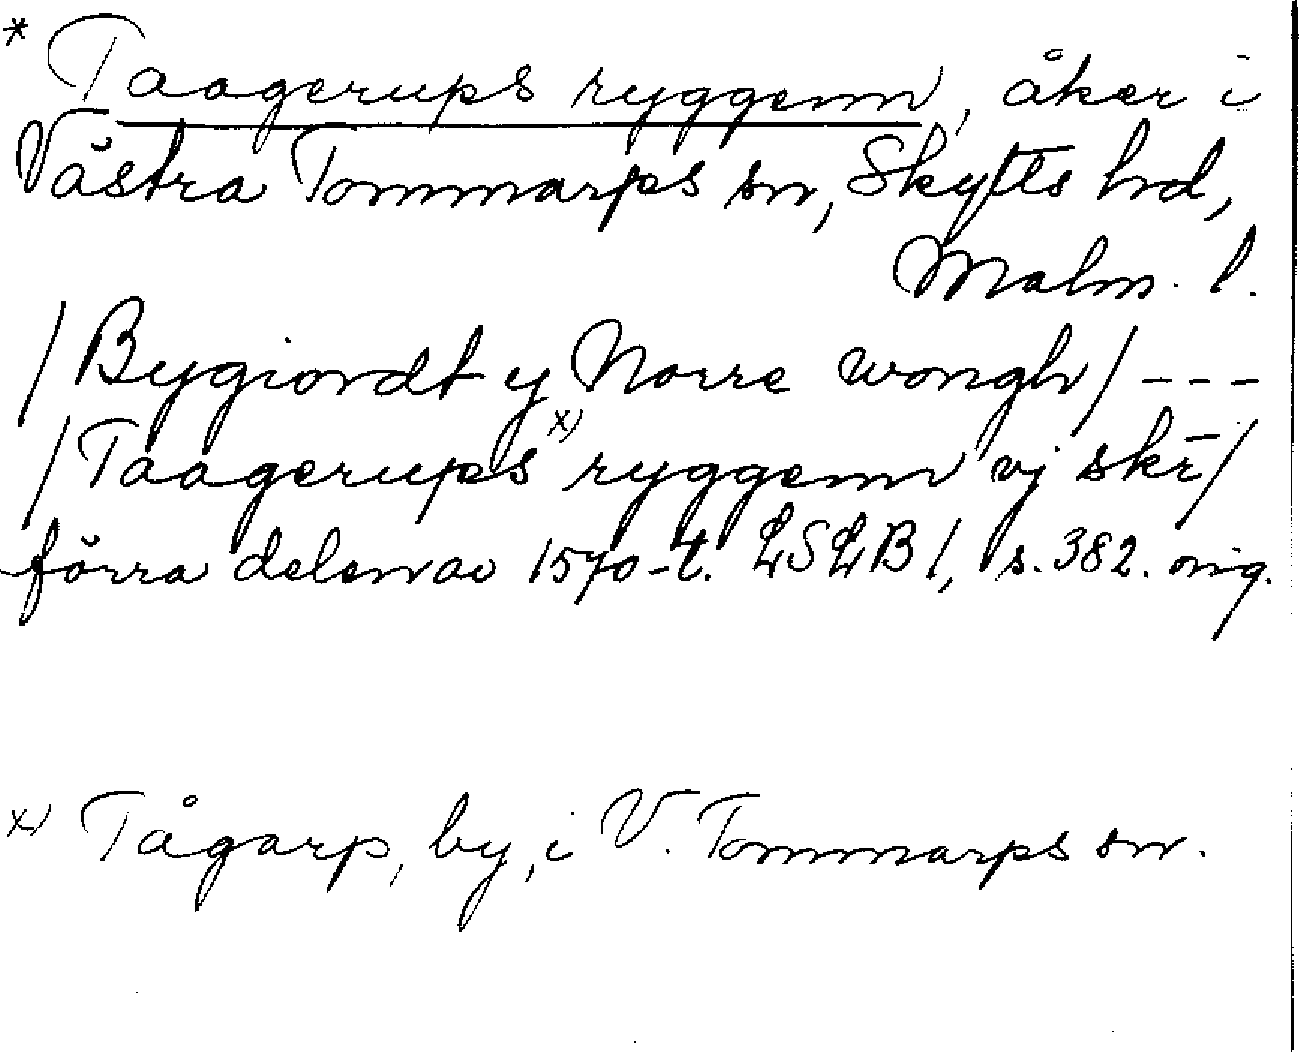 * Taagerups ryggenn, åker i
Västra Tommarps sn, Skytts hd,
Malm. l.
/Bygiordt y Norre wongh/ - - -
/Taagerups x) ryggenn vj skr̄/
förra delen av 1570-t. LSLB 1, s. 382. orig.
x) Tågarp, by, i V. Tommarps sn.